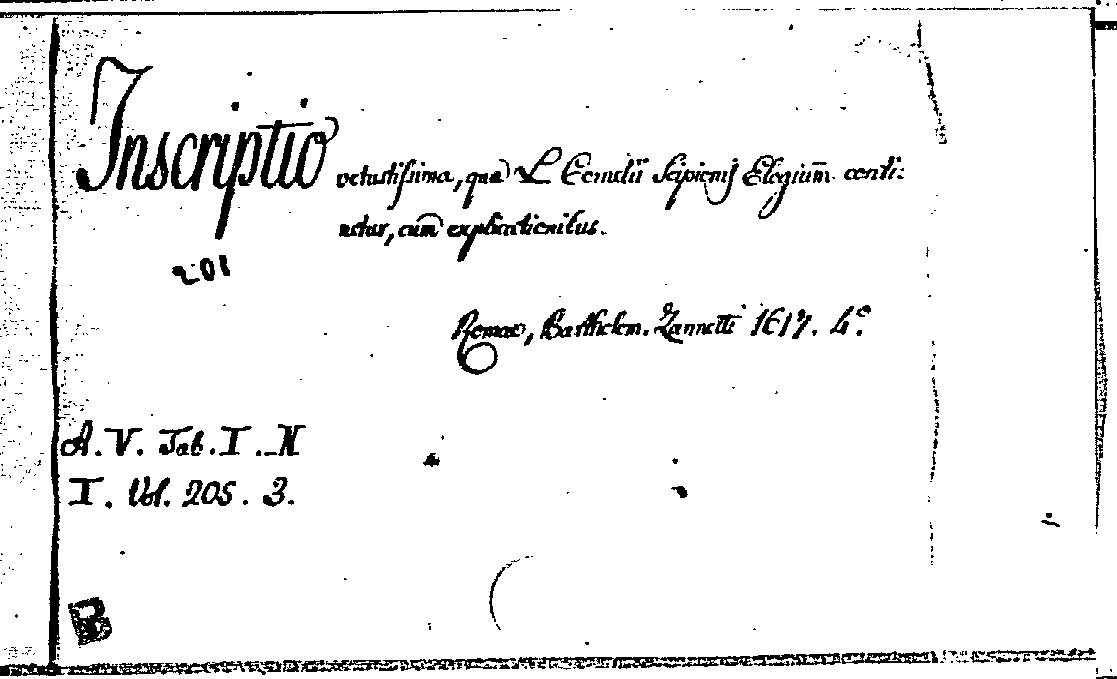 Inscriptio vetustissima, qua L Cornelii Scipionis Elogium conti:
netur, cum explicationibus.
201
Romae, Barthelem. Zannetti 1617. 4°
A. V. Tab. I. N
I. Vol. 205. 3.
B